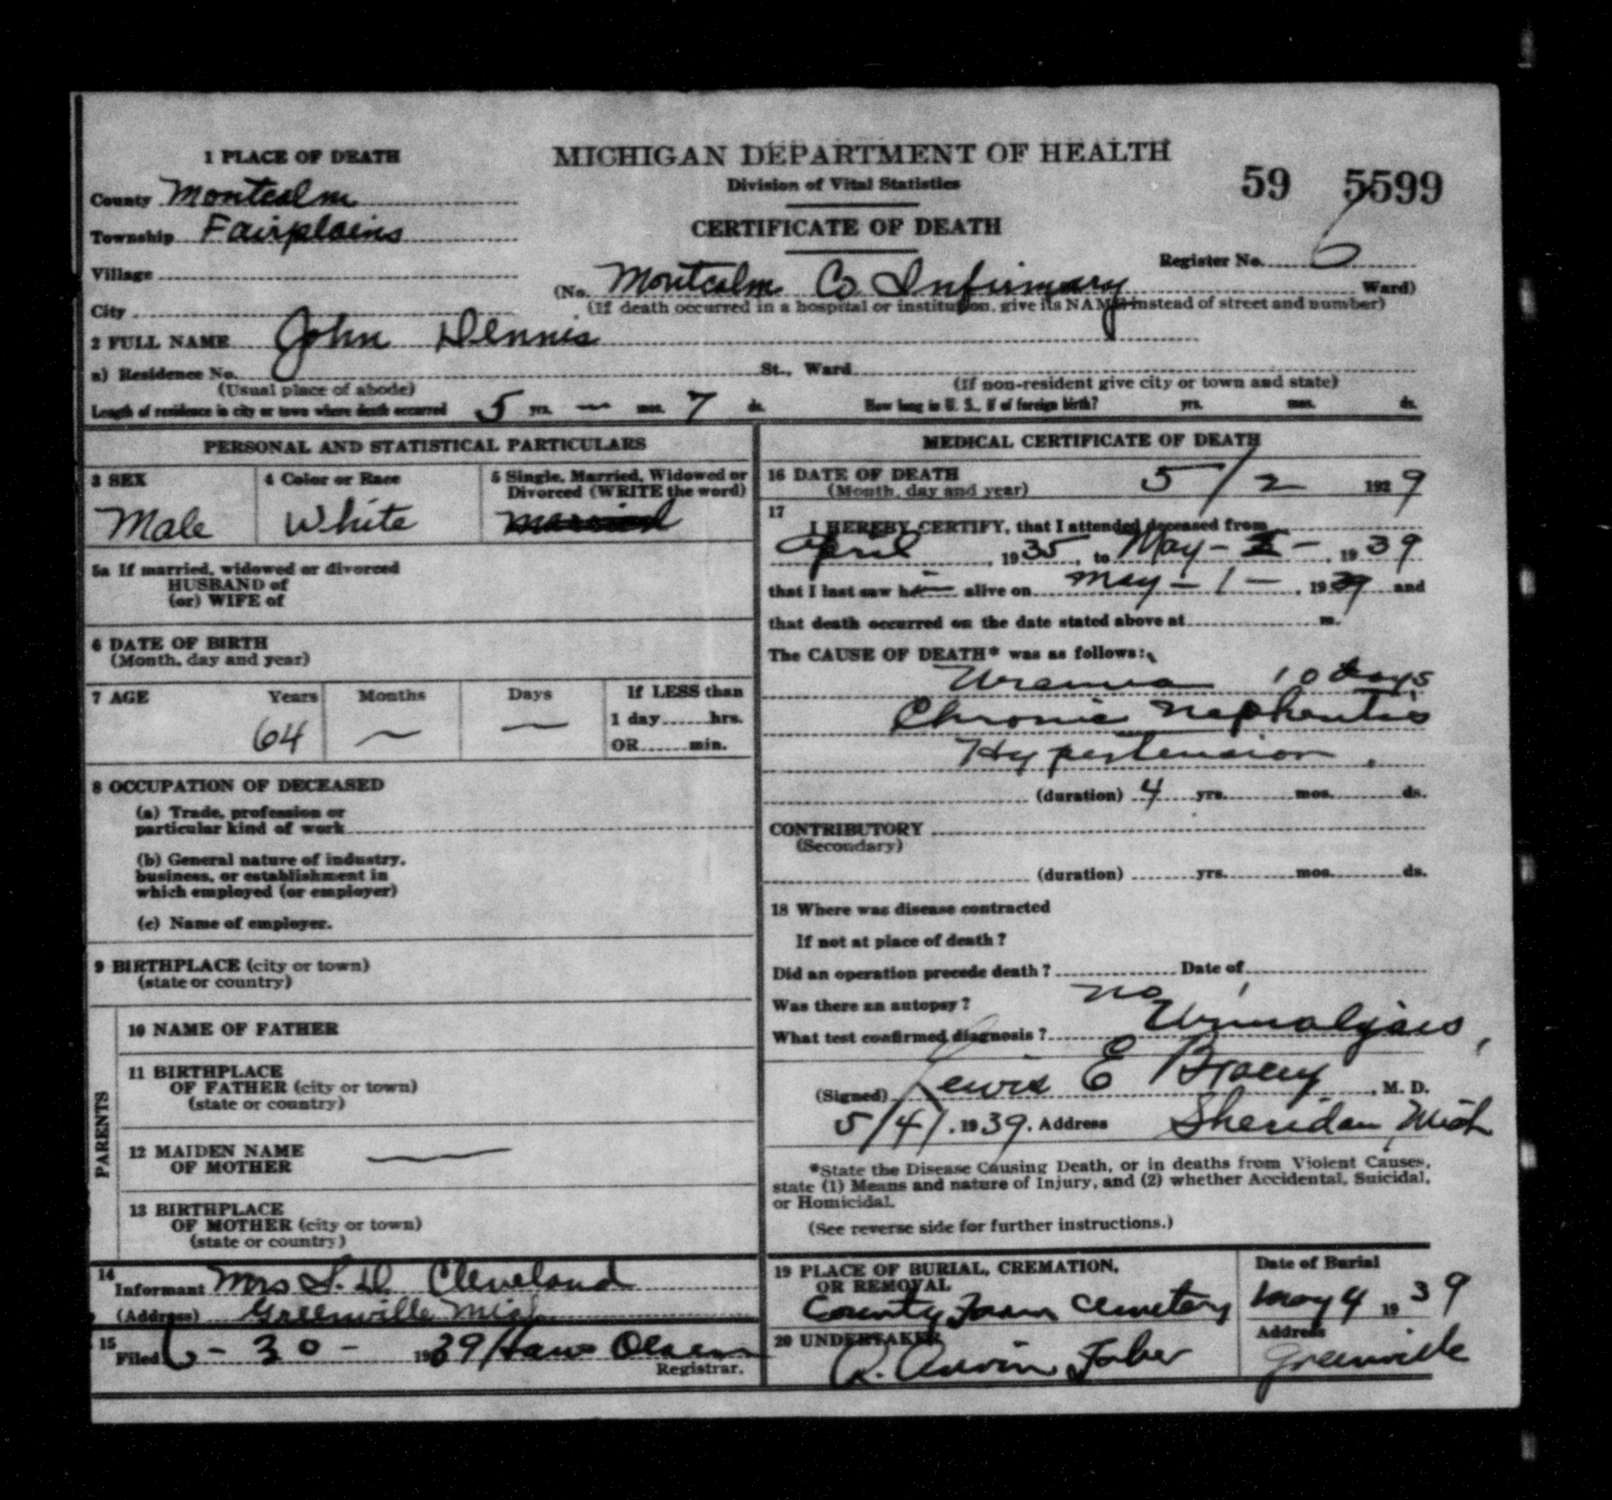 1 PLACE OF DEATH
MICHIGAN DEPARTMENT OF HEALTH
Division of Vital Statistics
59 5599
County Montcalm
Township Fairplains
CERTIFICATE OF DEATH
Village
Register No. 6
(No. Montcalm Co Infirmary Ward)
City
(If death occurred in a hospital or institution, give its NAME instead of street and number)
2 FULL NAME John Dennis
a) Residence No. St., Ward
(Usual place of abode) (If non-resident give city or town and state)
Length of residence in city or town where death occurred 5 yrs. — mos. 7 ds. How long in U. S., if of foreign birth? yrs. mos. ds.
PERSONAL AND STATISTICAL PARTICULARS
3 SEX
Male
4 Color or Race
White
5 Single, Married, Widowed or
Divorced (WRITE the word)
5a If married, widowed or divorced
HUSBAND of
(or) WIFE of
6 DATE OF BIRTH
(Month, day and year)
7 AGE Years Months Days If LESS than
64 — — 1 day hrs.
OR min.
8 OCCUPATION OF DECEASED
(a) Trade, profession or
particular kind of work
(b) General nature of industry,
business, or establishment in
which employed (or employer)
(c) Name of employer.
9 BIRTHPLACE (city or town)
(state or country)
PARENTS
10 NAME OF FATHER
11 BIRTHPLACE
OF FATHER (city or town)
(state or country)
12 MAIDEN NAME
OF MOTHER —
13 BIRTHPLACE
OF MOTHER (city or town)
(state or country)
14 Informant Mrs S. D. Cleveland
(Address) Greenville Mich
15 Filed 6-30- 1939 Hans Olsen
Registrar.
MEDICAL CERTIFICATE OF DEATH
16 DATE OF DEATH
(Month, day and year) 5/2 1929
17
I HEREBY CERTIFY, that I attended deceased from
April, 1935, to May - 2 -, 1939
that I last saw him alive on May - 1 -, 1939 and
that death occurred on the date stated above at m.
The CAUSE OF DEATH* was as follows:
Uremia 10 days
Chronic Nephritis
Hypertension.
(duration) 4 yrs. mos. ds.
CONTRIBUTORY
(Secondary)
(duration) yrs. mos. ds.
18 Where was disease contracted
If not at place of death?
Did an operation precede death? Date of
Was there an autopsy? no
What test confirmed diagnosis? Urinalysis,
(Signed) Lewis E Bracey, M. D.
5/4/, 1939. Address Sheridan, Mich
*State the Disease Causing Death, or in deaths from Violent Causes,
state (1) Means and nature of Injury, and (2) whether Accidental, Suicidal,
or Homicidal.
(See reverse side for further instructions.)
19 PLACE OF BURIAL, CREMATION,
OR REMOVAL
County Farm Cemetery
Date of Burial
May 4 1939
20 UNDERTAKER
R. Arwin Faber
Address
Greenville